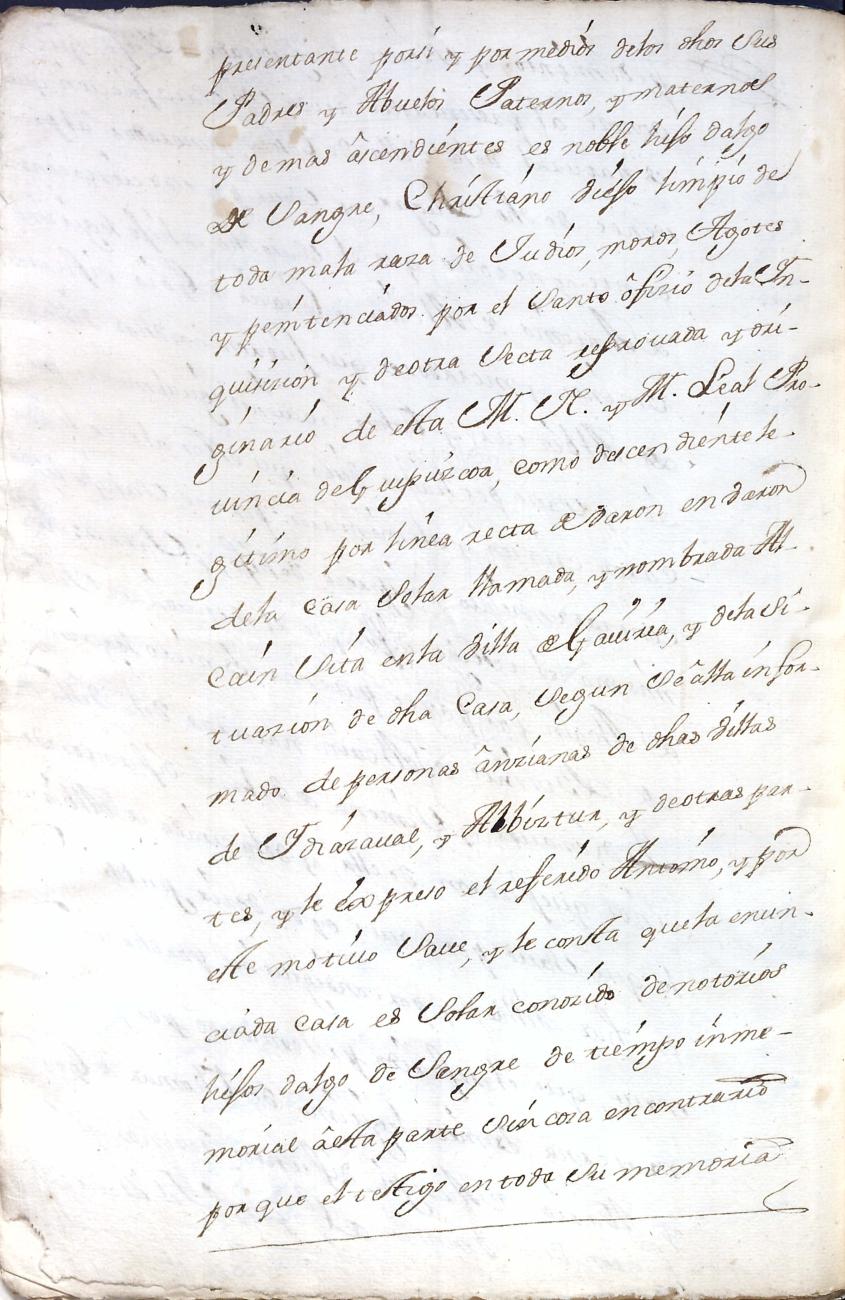 presentante porsi y por medios delos dhos sus
Padres y Abuelos Paternos, y maternos
y demas âscendientes es noble hijo dalgo
de Sangre, Christiano viejo limpio de
toda mala raza de Judios, moros, Agotes
y penitenciados por el Santo ôfizio dela In-
quisizion y deotra Secta reprovada y ori-
ginario de esta M. N. y M. Leal Pro-
vincia deGuipuzcoa, como descendiente le-
gitimo por linea recta de varon en varon
dela Casa Solar llamada, y nombrada Al-
cain Sita enla villa de Gaviria, y dela Si-
tuazion de dha Casa, Segun Se âlla infor-
mado de personas ânzianas de dhas villas
de Idiazaval, y Albiztur, y deotras par-
tes, y le êxpreso el referido Antonio, y por
este motivo Save, y le consta quela enun-
ciada Casa es Solar conozido denotorios
hijos dalgo de Sangre de tiempo inme-
morial âesta parte Sin cosa encontrario
por que el testigo entoda Su memoria